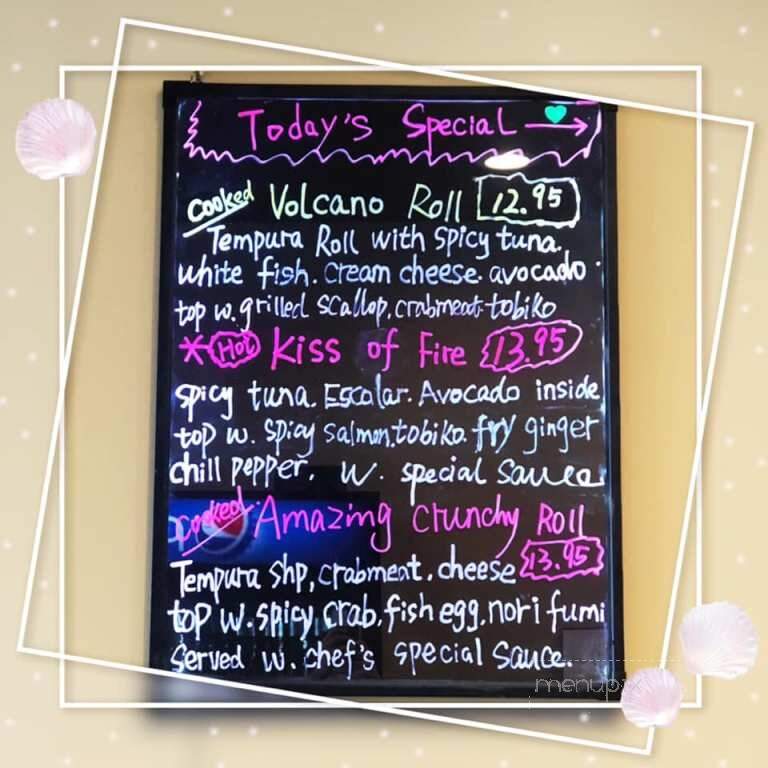 Today's Special →
cooked Volcano Roll 12.95
Tempura Roll with spicy tuna.
white fish. cream cheese. avocado.
top w. grilled scallop, crabmeat. tobiko
*Hot Kiss of Fire 13.95
spicy tuna. Escalar. Avocado inside
top w. spicy salmon. tobiko. fry ginger
chill pepper. w. special sauce
cooked Amazing Crunchy Roll
13.95
Tempura shp, crabmeat, cheese
top w. spicy crab, fish egg, nori fumi
served w. chef's special sauce.
menupix